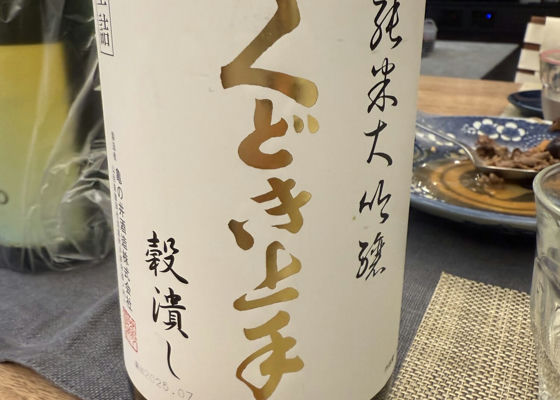 純米大吟醸
くどき上手
穀潰し
2025.07
亀の井酒造株式会社
詰